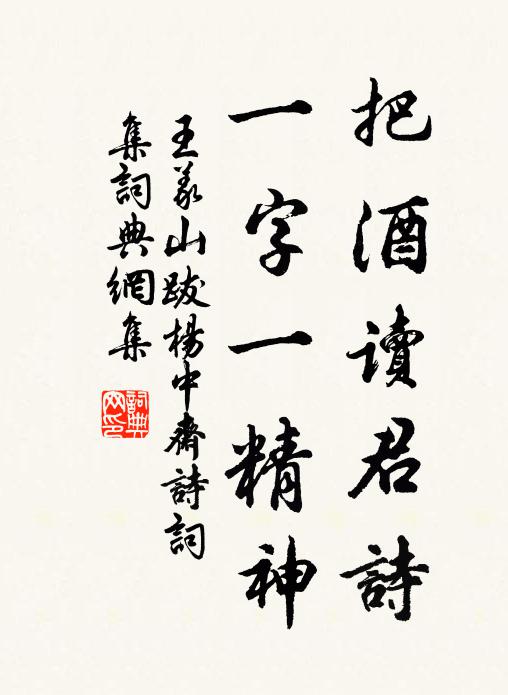 把酒讀君詩
一字一精神
王義山跋楊中齋詩詞
集詞典網集
詞典網印